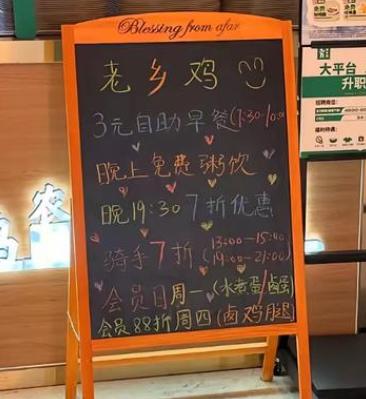 Blessing from afar
老乡鸡
3元自助早餐(7:30-10:00
晚上免费粥饮
晚19:30 7折优惠
骑手7折(13:00-15:40
19:00-21:00)
会员日周一(水煮蛋/卤蛋
会员88折周四(卤鸡腿)
大平台
升职
农